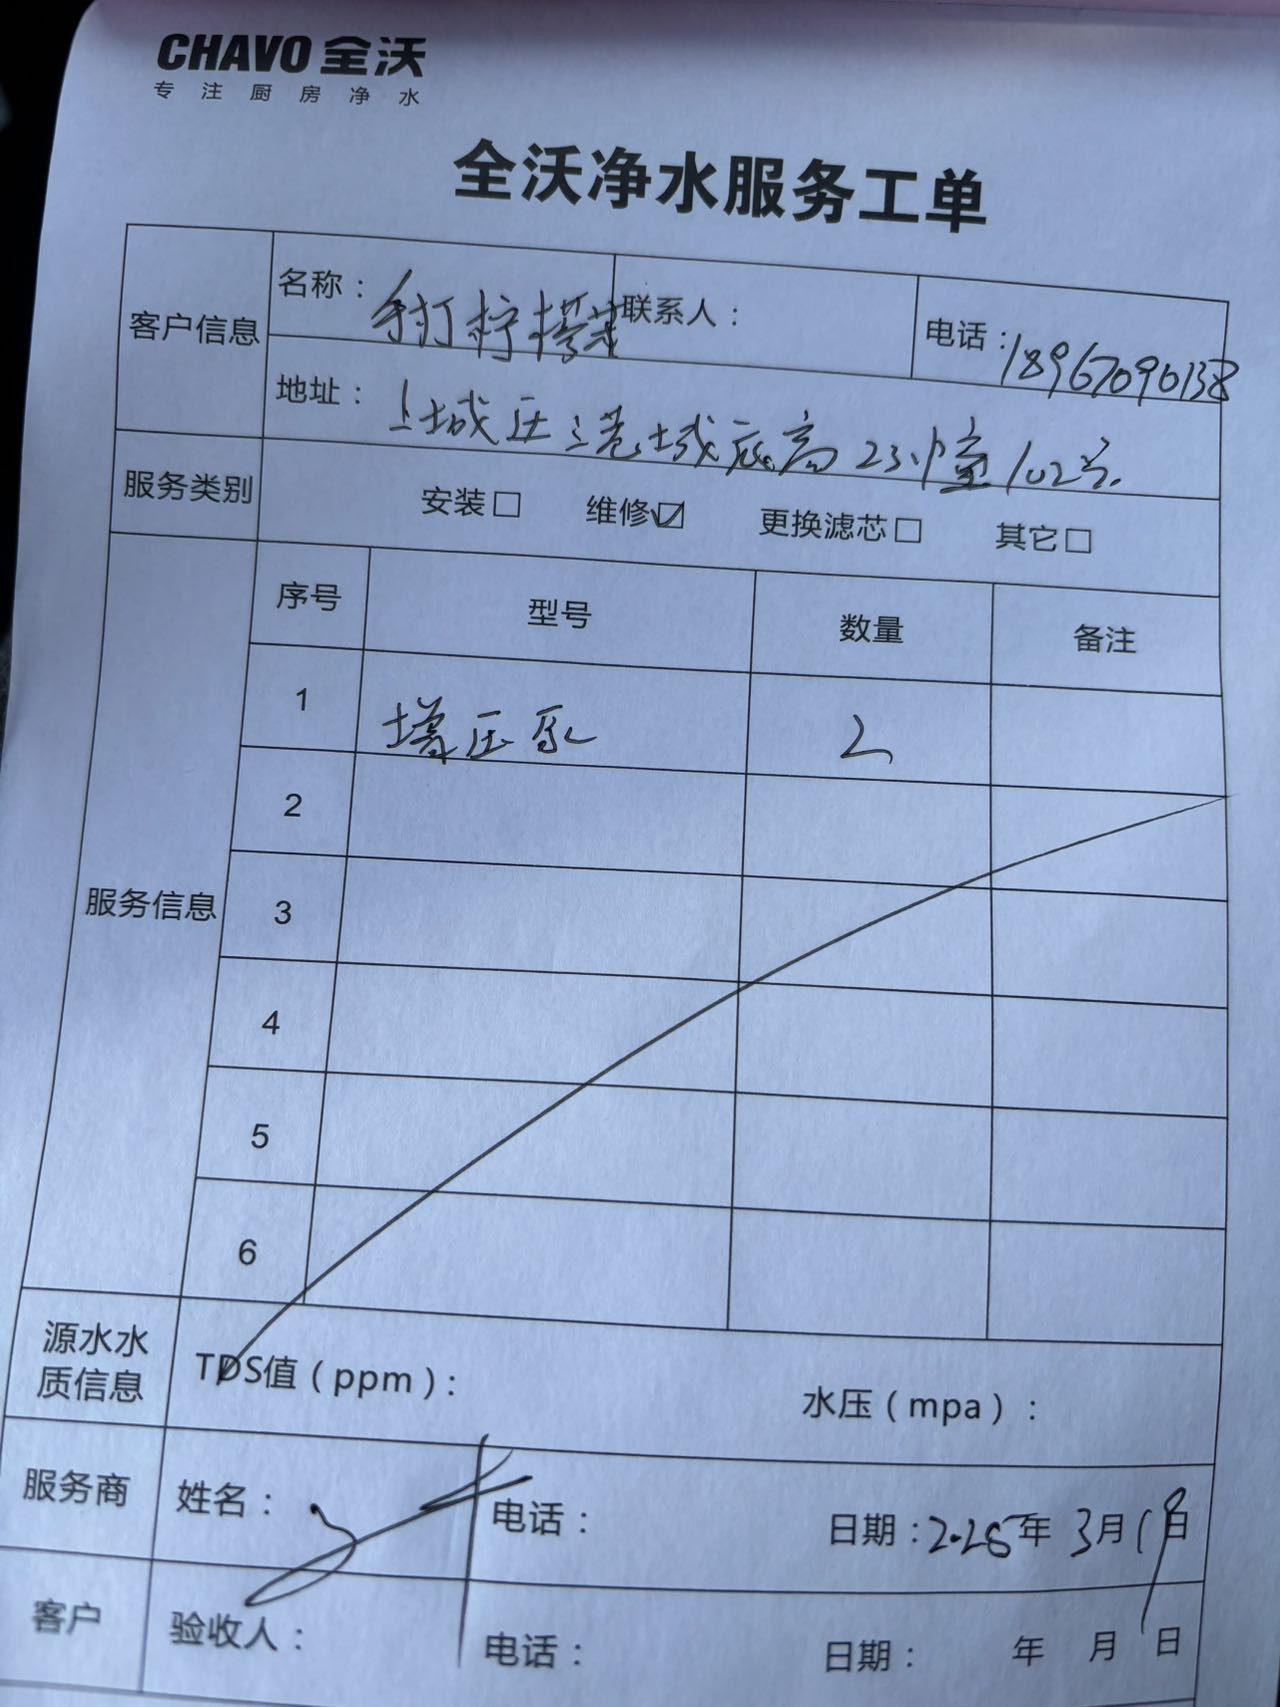 CHAVO 全沃
专注厨房净水
全沃净水服务工单
客户信息
名称：手打柠檬茶 联系人： 电话：18967090138
地址：上城区 城底商23幢102号
服务类别 安装□ 维修☑ 更换滤芯□ 其它□
服务信息
序号 型号 数量 备注
1 增压泵 2
2
3
4
5
6
源水水质信息 TDS值（ppm）： 水压（mpa）：
服务商 姓名： 电话： 日期：2025年3月19日
客户 验收人： 电话： 日期： 年 月 日